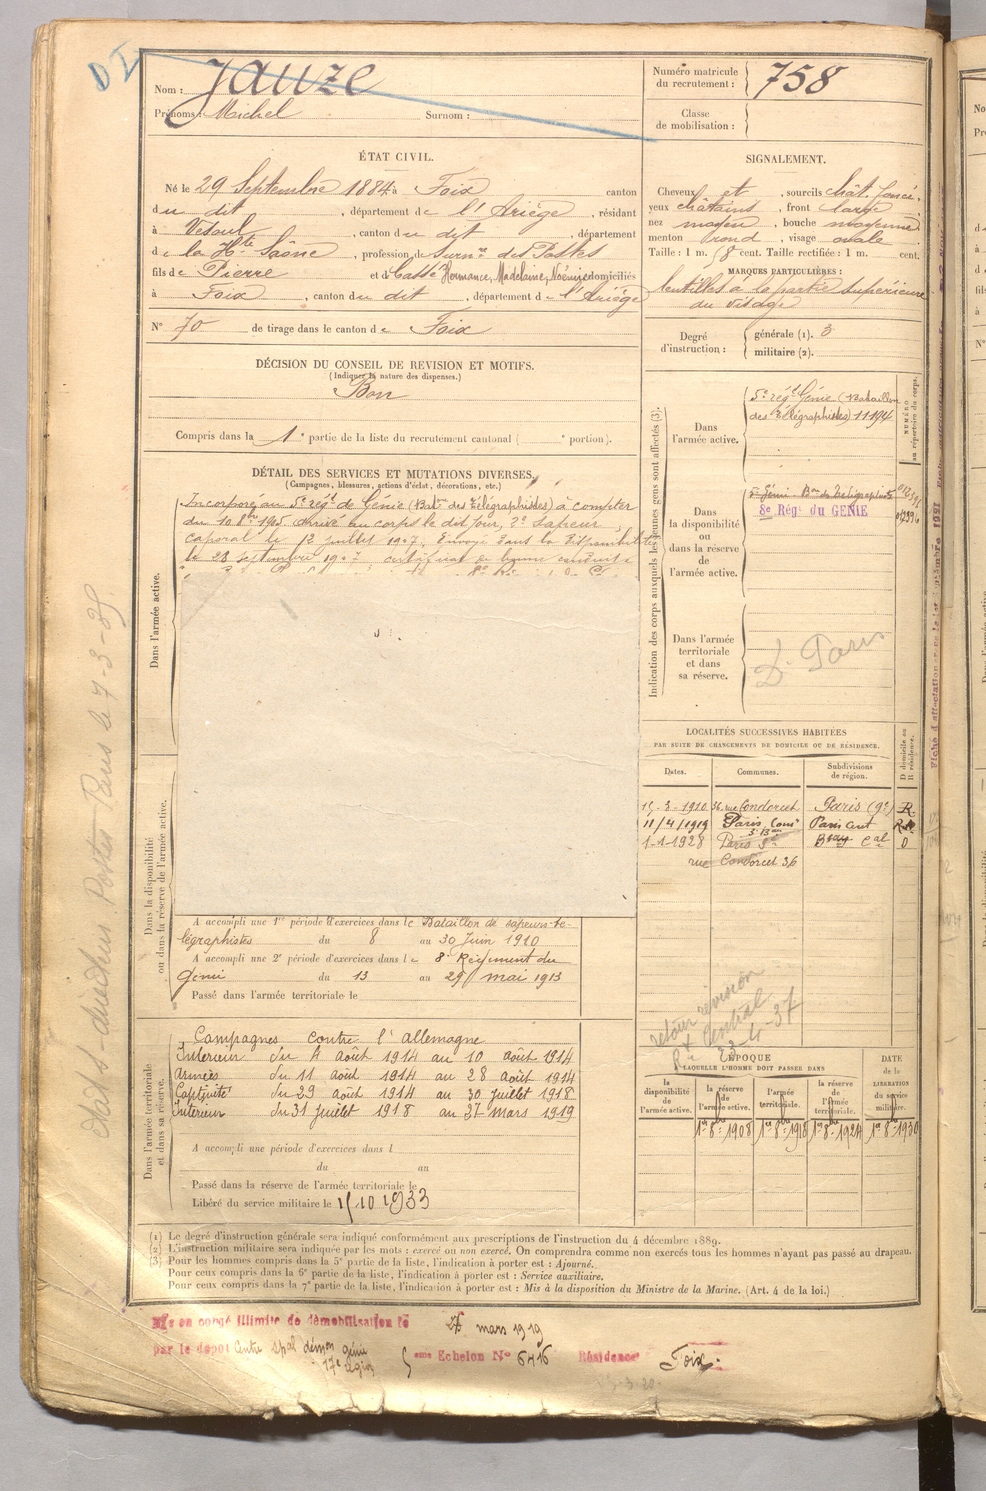 Nom : Jauze
Prénoms : Michel Surnom :
Numéro matricule du recrutement : 758
Classe de mobilisation :
ÉTAT CIVIL.
Né le 29 Septembre 1884 à Foix canton
du dit , département de l'Ariège , résidant
à Vesoul , canton du dit , département
de la Hte Saône , profession de Surnre des Postes
fils de Pierre et de Hermance, Madelaine, Noémie domiciliés
à Foix , canton du dit , département de l'Ariège
N° 70 de tirage dans le canton de Foix
SIGNALEMENT.
Cheveux et , sourcils chât. foncé,
yeux châtains , front large
nez moyen , bouche moyenne
menton rond , visage ovale
Taille : 1 m. cent. Taille rectifiée : 1 m. cent.
MARQUES PARTICULIÈRES :
lentilles à la partie supérieure
du visage
Degré d'instruction : générale (1). 3
militaire (2).
DÉCISION DU CONSEIL DE REVISION ET MOTIFS.
(Indiquer la nature des dispenses.)
Bon
Compris dans la 1e partie de la liste du recrutement cantonal ( e portion).
DÉTAIL DES SERVICES ET MUTATIONS DIVERSES.
(Campagnes, blessures, actions d'éclat, décorations, etc.)
Dans l'armée active.
Incorporé au 5e régt de Génie (Baton des Télégraphistes) à compter
du 10 8bre 1905 arrivé au corps le dit jour, 2e sapeur
caporal le 12 juillet 1907. Envoyé dans la disponibilité
le 28 septembre 1907 certificat de bonne conduite
Dans la disponibilité ou dans la réserve de l'armée active.
A accompli une 1re période d'exercices dans le Bataillon de sapeurs-té-
légraphistes du 8 au 30 Juin 1910
A accompli une 2e période d'exercices dans le 8e Régiment du
Génie du 13 au 29 mai 1913
Passé dans l'armée territoriale le
Dans l'armée territoriale et dans sa réserve.
Campagnes contre l'allemagne
Intérieur du 4 août 1914 au 10 août 1914
Armées du 11 août 1914 au 28 août 1914
Captivité du 29 août 1914 au 30 juillet 1918
Intérieur du 31 juillet 1918 au 27 mars 1919
A accompli une période d'exercices dans l
du au
Passé dans la réserve de l'armée territoriale le
Libéré du service militaire le 1/10 1933
Indication des corps auxquels les jeunes gens sont affectés (3).
NUMÉRO au répertoire du corps.
Dans l'armée active.
5e régt Génie (Bataillon
des Télégraphistes) 11194
Dans la disponibilité ou dans la réserve de l'armée active.
5e Génie - Bon de Télégraphistes
8e Régt du GENIE
Dans l'armée territoriale et dans sa réserve.
Dt Paris
LOCALITÉS SUCCESSIVES HABITÉES
PAR SUITE DE CHANGEMENTS DE DOMICILE OU DE RÉSIDENCE.
Dates. Communes. Subdivisions de région. D domicile ou R résidence.
15-3-1910 36, rue Condorcet Paris (9e) R
11/4/1919 Paris Paris cent
1-1-1928 Paris cal D
rue Condorcet 36
retour révision
Central
23-4-37
ÉPOQUE
À LAQUELLE L'HOMME DOIT PASSER DANS
DATE de la LIBÉRATION du service militaire.
la disponibilité de l'armée active. la réserve de l'armée active. l'armée territoriale. la réserve de l'armée territoriale.
1er 8bre 1908 1er 8bre 1918 1er 8bre 1924 1er 8bre 1930
(1) Le degré d'instruction générale sera indiqué conformément aux prescriptions de l'instruction du 4 décembre 1889.
(2) L'instruction militaire sera indiquée par les mots : exercé ou non exercé. On comprendra comme non exercés tous les hommes n'ayant pas passé au drapeau.
(3) Pour les hommes compris dans la 5e partie de la liste, l'indication à porter est : Ajourné.
Pour ceux compris dans la 6e partie de la liste, l'indication à porter est : Service auxiliaire.
Pour ceux compris dans la 7e partie de la liste, l'indication à porter est : Mis à la disposition du Ministre de la Marine. (Art. 4 de la loi.)
Mis en congé illimité de démobilisation le 27 mars 1919
par le dépôt Centre spal génie
17e région
5eme Echelon N° 6416 Résidence Foix.